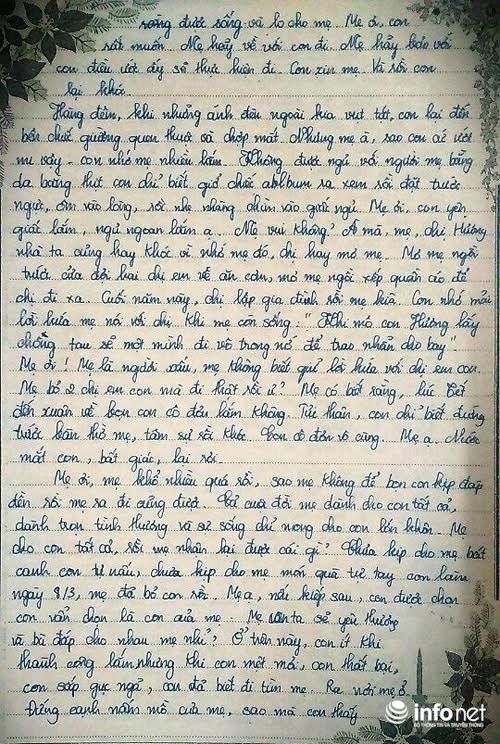 được sống và lo cho mẹ. Mẹ ơi, con
rất muốn. Mẹ hãy về với con đi. Mẹ hãy bảo với
con điều ước ấy sẽ thực hiện đi. Con xin mẹ. Và rồi con
lại khóc.
Hàng đêm, khi những ánh đèn ngoài kia vụt tắt, con lại đến
bên chiếc giường quen thuộc và chợp mắt. Nhưng mẹ à, sao con cứ ươn
mi vậy. con nhớ mẹ nhiều lắm. Không được ngủ với người mẹ bằng
da bằng thịt con chỉ biết giở chiếc album ra xem rồi đặt trước
ngực, ôm vào lòng, rồi nhẹ nhàng chìm vào giấc ngủ. Mẹ ơi, con yên
giấc lắm, ngủ ngoan lắm ạ. Mẹ vui không? À mà, mẹ, chị Hương
nhà ta cũng hay khóc vì nhớ mẹ đó, chị hay mơ mẹ. Mơ mẹ ngồi
trước cửa đợi hai chị em về ăn cơm, mơ mẹ ngồi xếp quần áo để
chị đi xa. Cuối năm này, chị lập gia đình rồi mẹ kìa. Con nhớ mãi
lời hứa mẹ nói với chị khi mẹ còn sống: "Khi mô con Hương lấy
chồng tau sẽ một mình đi vô trong nớ để trao nhẫn cho bay".
Mẹ ơi! Mẹ là người xấu, mẹ không biết giữ lời hứa với chị em con.
Mẹ bỏ 2 chị em con mà đi thật rồi ư? Mẹ có biết rằng, lúc Tết
đến xuân về bọn con cô đơn lắm không. Tủi thân, con chỉ biết đứng
trước bàn thờ mẹ, tâm sự rồi khóc. Con cô đơn vô cùng. Mẹ ạ. Nước
mắt con, bất giác, lại rơi.
Mẹ ơi, mẹ khổ nhiều quá rồi, sao mẹ không để bọn con kịp đáp
đền rồi mẹ ra đi cũng được. Cả cuộc đời mẹ dành cho con tất cả,
dành trọn tình thương và sự sống chỉ mong cho con lớn khôn. Mẹ
cho con tất cả, rồi mẹ nhận lại được cái gì? Chưa kịp cho mẹ bát
canh con tự nấu, chưa kịp cho mẹ món quà tự tay con làm
ngày 8/3, mẹ đã bỏ con rồi. Mẹ ạ, nếu kiếp sau, con được chọn
con vẫn chọn là con của mẹ. Mẹ con ta sẽ yêu thương
và bù đắp cho nhau mẹ nhỉ? Ở trên này, con ít khi
thành công lắm nhưng khi con mệt mỏi, con thất bại,
con sắp gục ngã, con đã biết đi tìm mẹ. Ra nơi mẹ ở.
Đứng cạnh nấm mồ của mẹ, sao mà con thấy
infonet